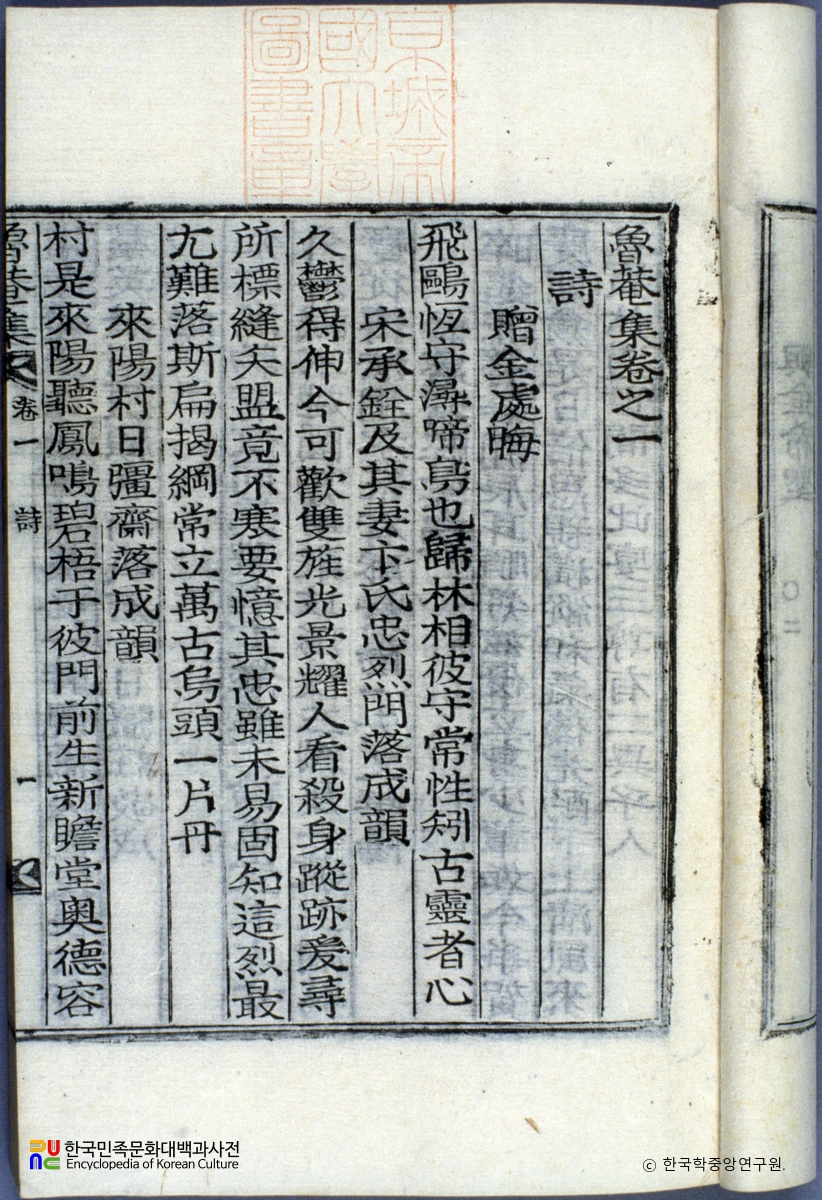 京城帝
國大學
圖書章
魯菴集卷之一
詩
贈金處晦
飛鷗恆守潯啼鳥也歸林相彼守常性矧古靈者心
宋承銓及其妻卞氏忠烈門落成韻
久鬱得伸今可歡雙旌光景耀人看殺身蹤跡爰尋
所標縫矢盟竟不寒要憶其忠雖未易固知這烈最
尤難落斯扁揭綱常立萬古烏頭一片丹
來陽村日彊齋落成韻
村是來陽聽鳳鳴碧梧于彼門前生新瞻堂奧德容
魯菴集 卷一 詩 一
한국민족문화대백과사전
Encyclopedia of Korean Culture
ⓒ 한국학중앙연구원.